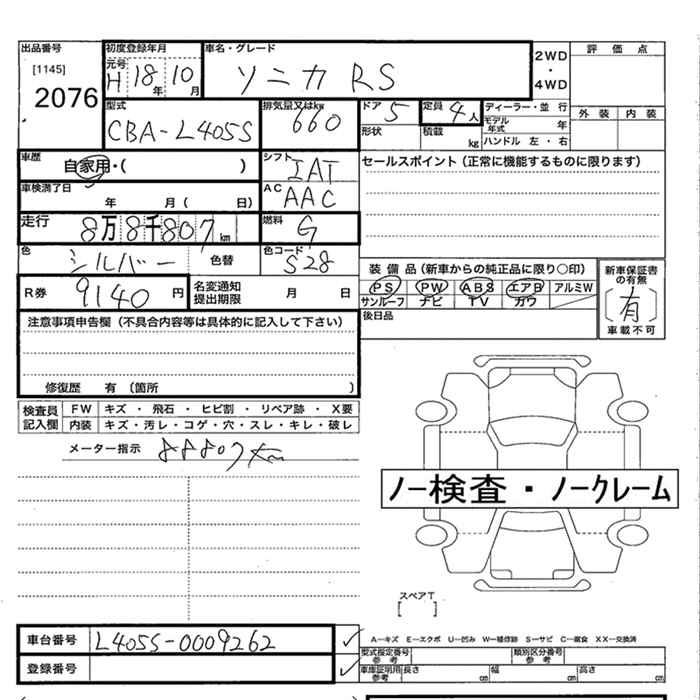 出品番号 初度登録年月 車名・グレード 2WD・4WD 評価点
[1145] 元号 H 18年 10月 ソニカ RS
2076
型式 排気量又はkw ドア 5 定員 4人 ディーラー・並行 外装 内装
CBA-L405S 660 形状 積載 kg モデル年式 年
ハンドル 左・右
車歴 自家用・( ) シフト IAT セールスポイント (正常に機能するものに限ります)
車検満了日 年 月 ( 日) AC AAC
走行 8万8千807km 燃料 G
色 シルバー 色替 色コード S28
装備品 (新車からの純正品に限り○印) 新車保証書の有無
R券 9140円 名変通知提出期限 月 日 PS PW ABS エアB アルミW 有
サンルーフ ナビ TV カワ 車載不可
注意事項申告欄 (不具合内容等は具体的に記入して下さい) 後日品
修復歴 有 (箇所 )
検査員記入欄 FW キズ・飛石・ヒビ割・リペア跡・X要
内装 キズ・汚レ・コゲ・穴・スレ・キレ・破レ
メーター指示 88807km
ノー検査・ノークレーム
スペアT
[ ]
車台番号 L405S-0009262
A―キズ E―エクボ U―凹み W―補修跡 S―サビ C―腐食 XX―交換済
型式指定番号 参考 類別区分番号 参考
登録番号 車庫証明用 参考 長さ cm 幅 cm 高さ cm